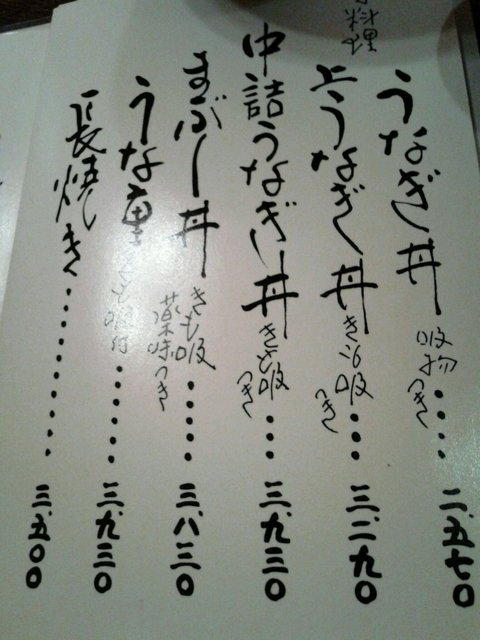 料理
うなぎ丼 吸物つき・・・・ 二、五七〇
上うなぎ丼 きも吸つき・・・ 三、二九〇
中詰うなぎ丼 きも吸つき・・・ 三、九三〇
まぶし丼 きも吸 薬味つき・・・・・ 三、八三〇
うな重 きも吸付・・・・・・ 三、九三〇
長焼き・・・・・・・・・・ 三、五〇〇